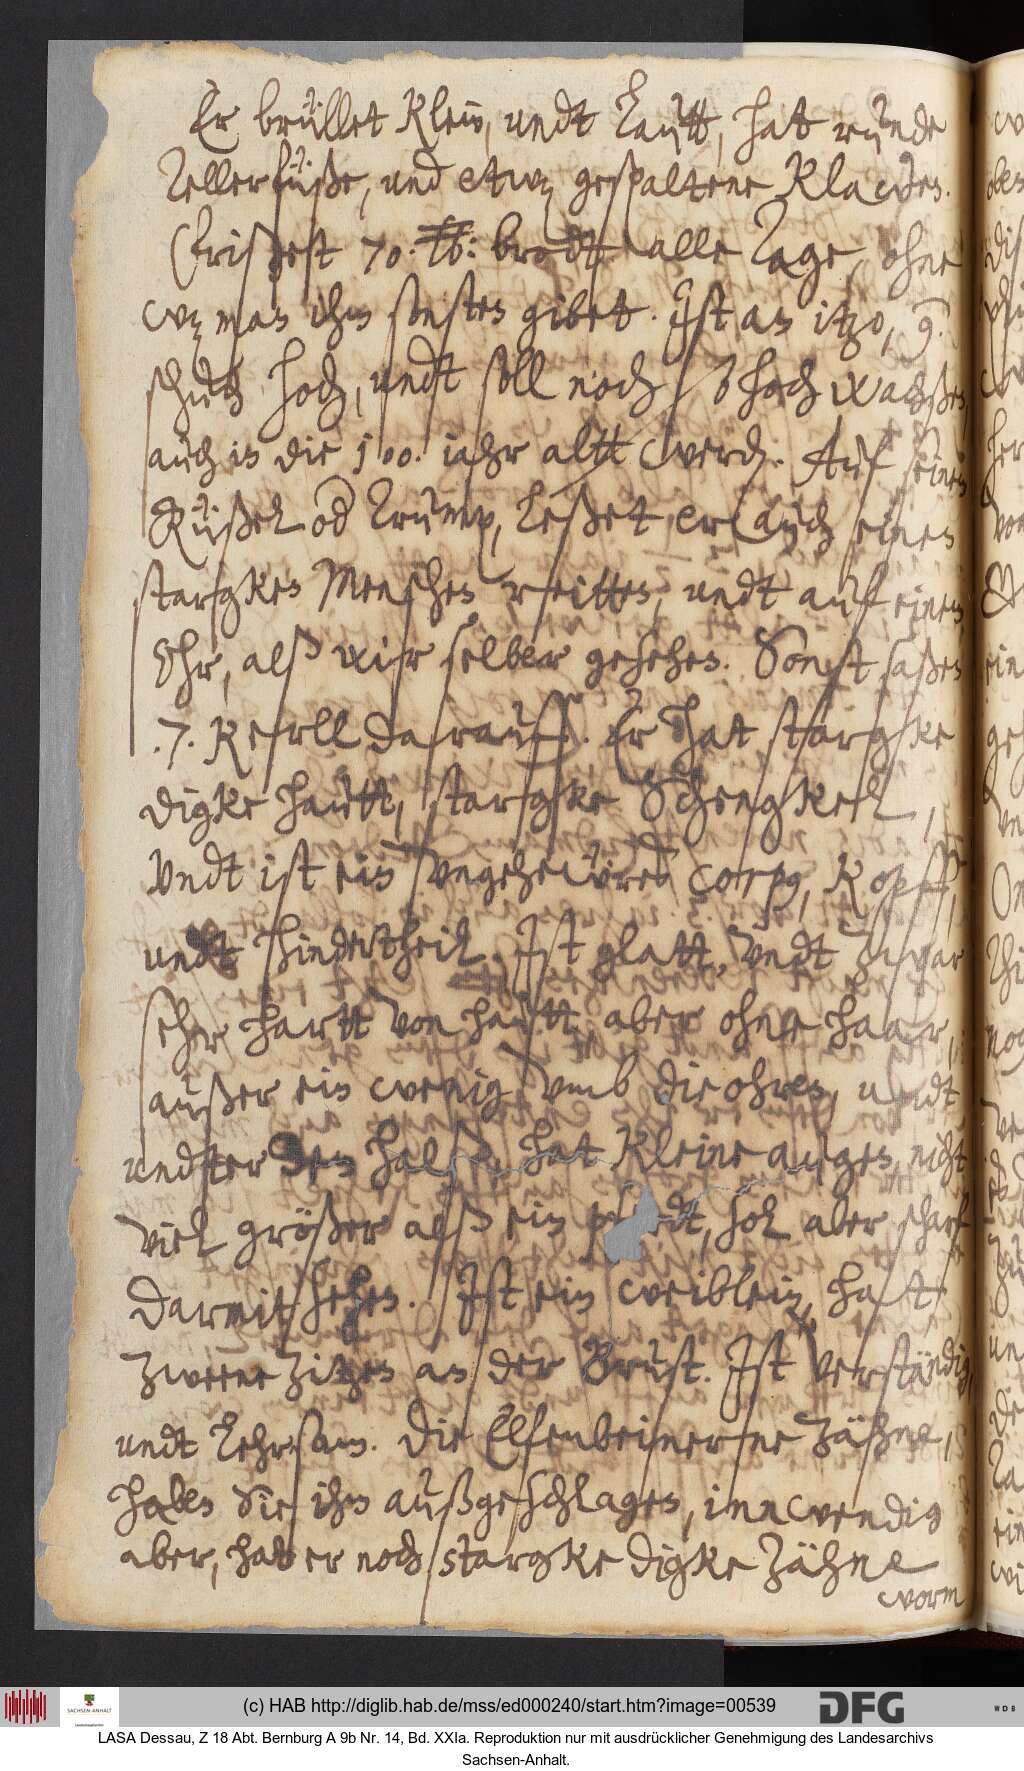 Er brüllet klein, undt lautt, hat runde
Tellerfüße, und etwz gespaltene Klawen.
Erißest 70. ℔: brodt alle Tage, ohne
wz man ihm sonsten gibet. Ist an itzo, 9.
schueh hoch, undt soll noch so hoch wachßen,
auch in die 100. iahr altt werden. Auf seinen
Rüßel od Trump, leßet er auch einen
stargken Menschen reitten, undt auf einem
Ohr, alß wir selber gesehen. Sonst saßen
.7. Kerll darauff. Er hat stargke
digke hautt, stargke Schengkel,
Undt ist ein ungeheüres corpus, Kopff,
undt hindertheil. Ist glatt, undt zwar
sehr hartt von hautt aber ohne haar,
außer ein wenig umb die ohren, undt
undter den halß, hat kleine augen nicht
viel größer alß ein pferdt, sol aber scharf
darmit sehen. Ist ein weiblein, hatt
zweene zitzen an der Brust. Ist verständig,
undt lehrsam. Die Elfenbeinerne zähne,
haben Sie ihm außgeschlagen, innwendig
aber, hat er noch stargke digke zähne
worm
(c) HAB http://diglib.hab.de/mss/ed000240/start.htm?image=00539
SACHSEN-ANHALT
DFG
WDB
LASA Dessau, Z 18 Abt. Bernburg A 9b Nr. 14, Bd. XXIa. Reproduktion nur mit ausdrücklicher Genehmigung des Landesarchivs
Sachsen-Anhalt.